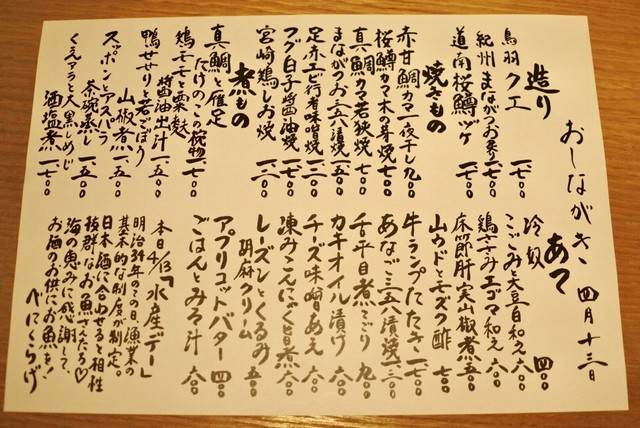 おしながき 四月十三日
造り
鳥羽クエ 一、七〇〇
紀州まながつお炙り 一、七〇〇
道南桜鱒ヅケ 一、七〇〇
焼きもの
赤甘鯛カマ一夜干し 九〇〇
桜鱒カマ木の芽焼 七〇〇
真鯛カマ若狭焼 七〇〇
まながつお三五八漬焼 一、五〇〇
足赤エビ行者味噌焼 一、三〇〇
フグ白子醤油焼 一、七〇〇
宮崎鶏しお焼 一、三〇〇
煮もの
真鯛と雁足
たけのこの椀物 一、七〇〇
鶏モモと粟麩
醤油出汁 一、五〇〇
鴨せせりと若ごぼう
山椒煮 一、五〇〇
スッポンとアスパラ
茶碗蒸し 一、五〇〇
くえアラと大黒しめじ
酒塩煮 一、七〇〇
あて
冷奴 四〇〇
こごみと大豆白和え 六〇〇
鶏ささみエゴマ和え 六〇〇
床節肝実山椒煮 八五〇
山ウドとモズク酢 七〇〇
牛ランプたたき 一、七〇〇
あなご三五八漬焼 一、三〇〇
舌平目煮こごり 九〇〇
カキオイル漬け 六〇〇
チーズ味噌あえ 六〇〇
凍みこんにゃく旨煮 六〇〇
レーズンとくるみ
胡麻クリーム 五〇〇
アプリコットバター 四〇〇
ごはんとみそ汁 六〇〇
本日4/13「水産デー」
明治34年のこの日、漁業の
基本的な制度が制定。
日本酒に合わせると相性
抜群なお魚さんたち♡
海の恵みに感謝して、
お酒のお供にお魚を!
べにくらげ